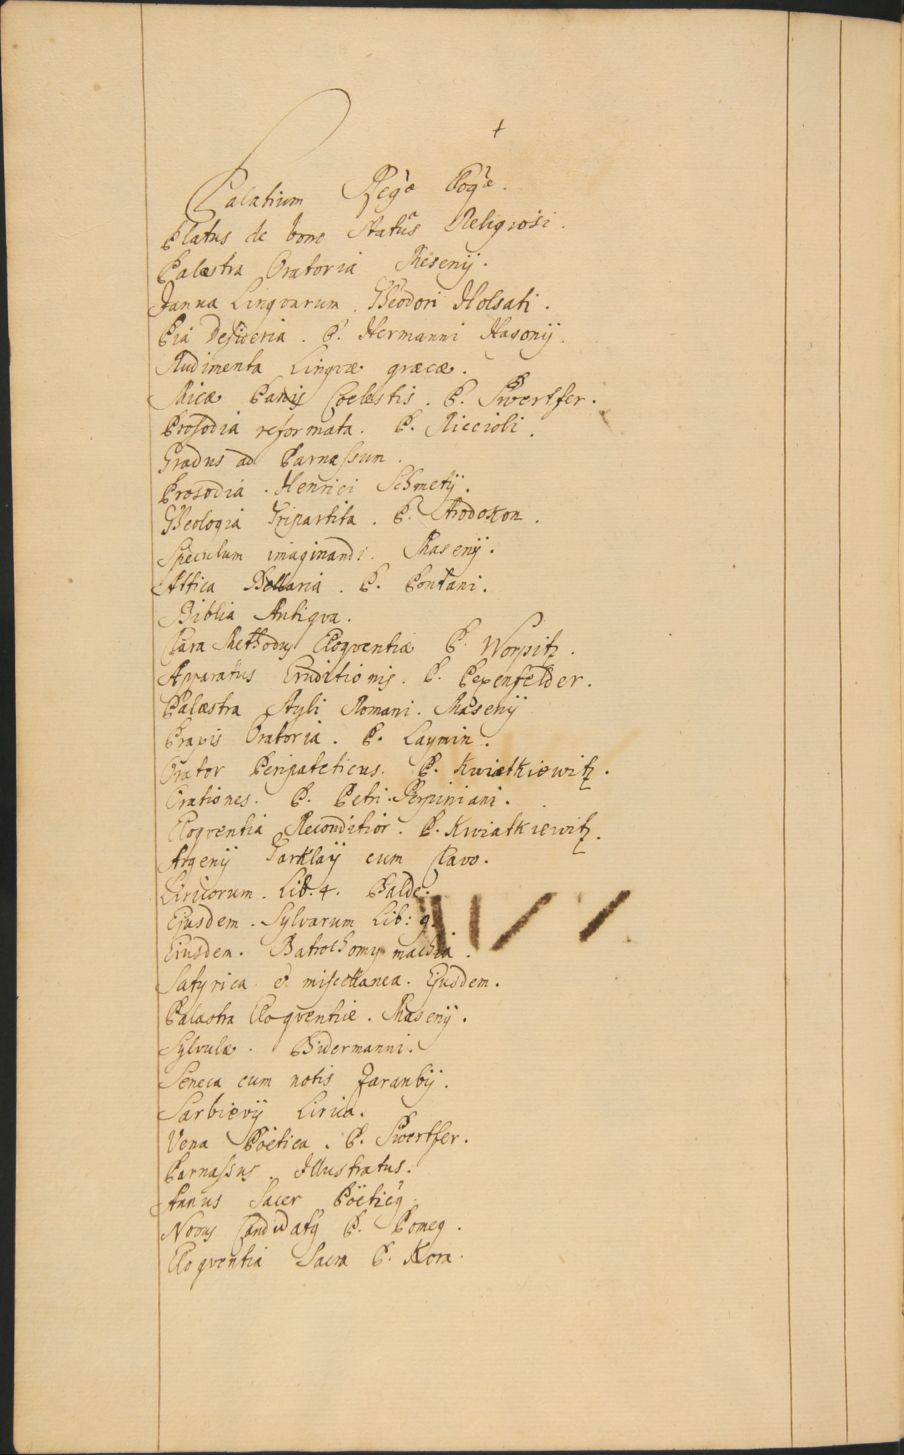 Palatium Regiae Eloq.
Platus de bono Status Religiosi.
Palæstra Oratoria Masenij.
Janua Lingvarum. Theodori Holsati.
Pia Desideria. P. Hermanni Hugonij.
Rudimenta Lingvæ græcæ.
Micæ Panis Coelestis. P. Swertfer.
Prosodia reformata. P. Riccioli.
Gradus ad Parnassum.
Prosodia. Henrici Schmetij.
Theologia Tripartita. P.
Speculum imaginandi. Masenij.
Attica Bellaria. P. Pontani.
Biblia Antiqva.
Clara Methodus Eloqventiæ P. Worpitz.
Apparatus Eruditionis. P. Pexenfelder.
Palæstra Styli Romani. Masenij
Praxis Oratoria. P. Laymin.
Orator Peripateticus. P. Kwiatkiewitz.
Orationes. P. Petri. Perpiniani.
Eloqventia Reconditior. P. Kwiatkiewitz.
Argenij Barklaij cum Clave.
Liricorum. Lib. 4. Balde.
Ejusdem. Sylvarum Lib: 9
Eiusdem. Batrochomymachia.
Satyrica & miscellanea. Ejusdem.
Palæstra Eloqventiæ. Masenij.
Sylvulæ. Bidermanni.
Seneca cum notis Faranbij.
Sarbievij Lirica.
Vena Pöetica. P. Swertfer.
Parnassus Illustratus.
Annus Sacer Pöeticq
Novus Candidatq P. Pomeq.
Eloqventia Sacra P. Kora.